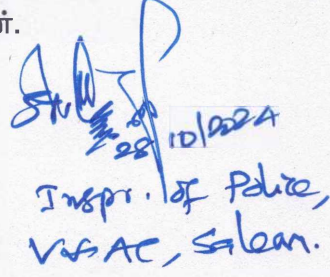 ர்.
28/10/2024
Inspr. of Police,
V&AC, Salem.